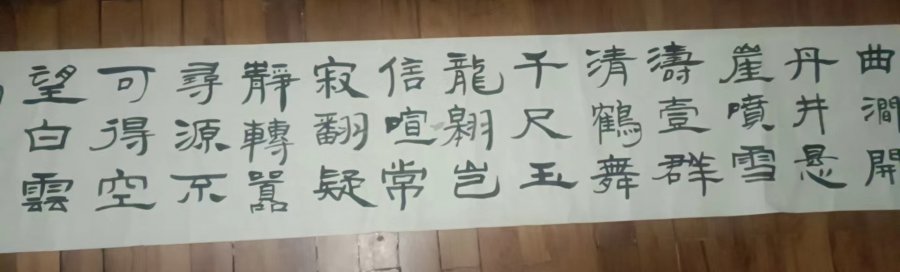 曲澗開
丹井懸
崖噴雪
濤壹群
清鶴舞
千尺玉
龍翱岂
信喧常
寂翻疑
靜轉囂
尋源不
可得空
望白雲